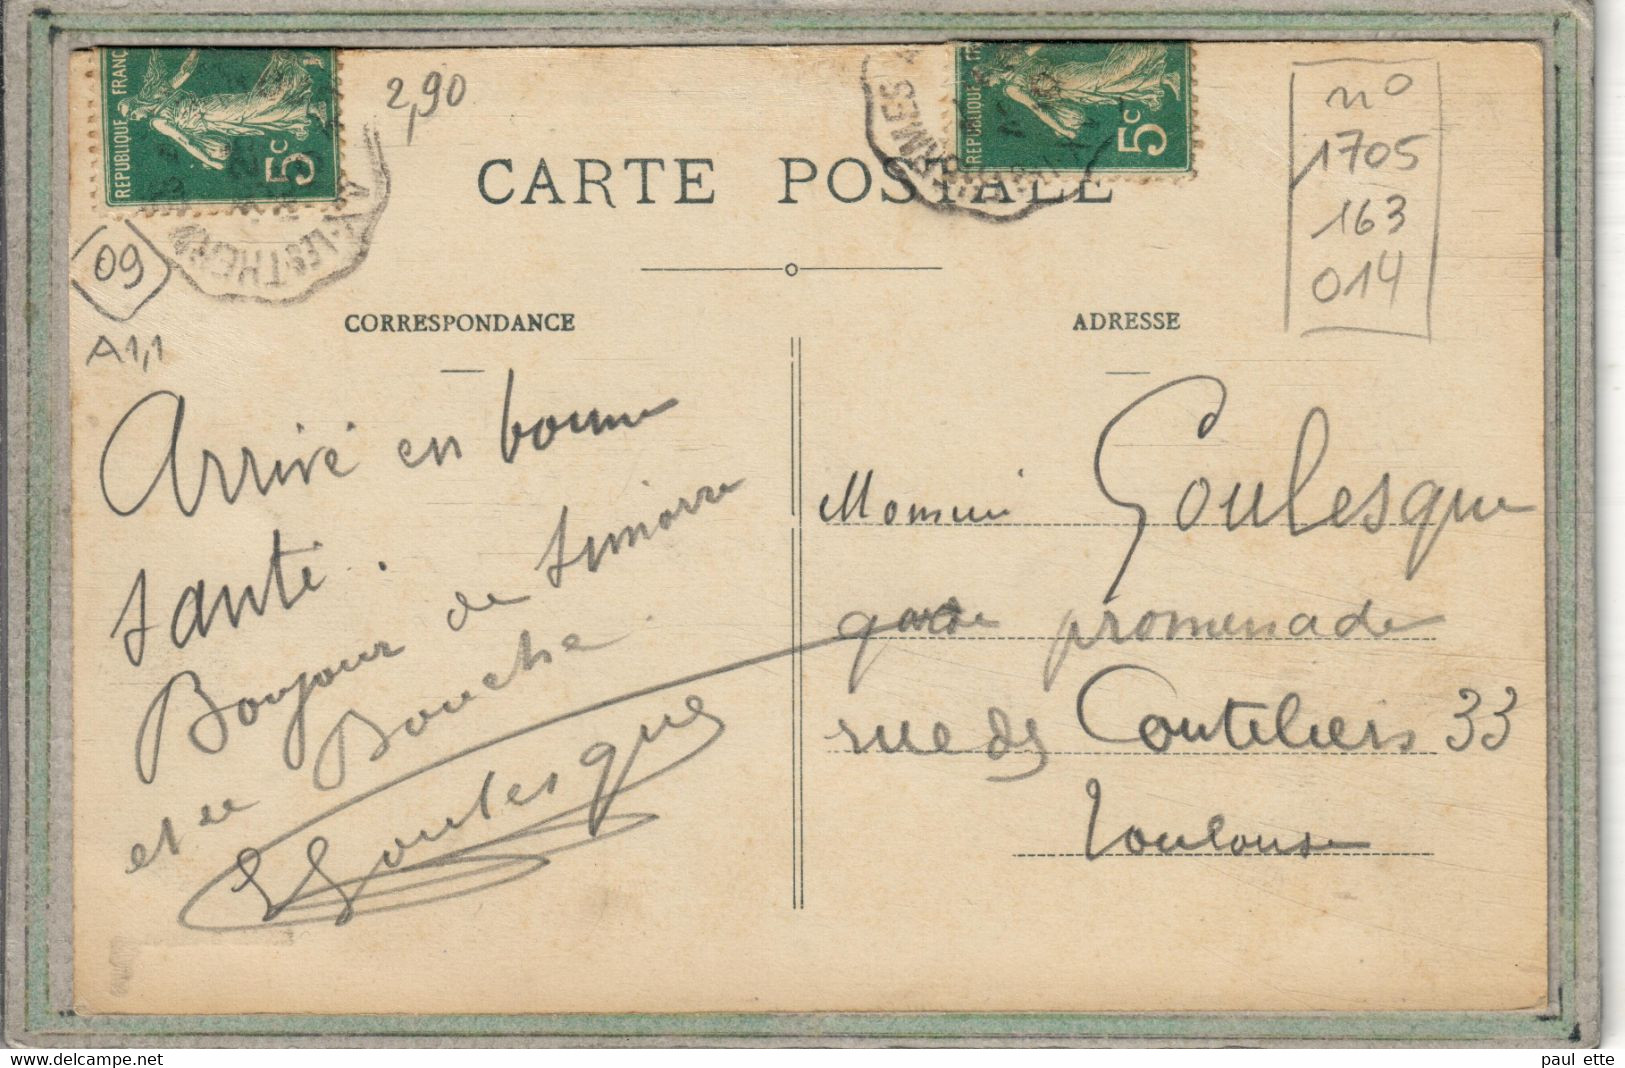 REPUBLIQUE FRANÇ
5c
2,90
REPUBLIQUE FRANÇ
5c
n°
1705
163
014
CARTE POSTALE
09
A1,1
CORRESPONDANCE
ADRESSE
Arrivé en bonne
santé.
Bonjour de Simorre
et de Bouche
Goulesque
Monsieur Goulesque
garde promenade
rue des Couteliers 33
Toulouse
https://www.delcampe.net
paul ette